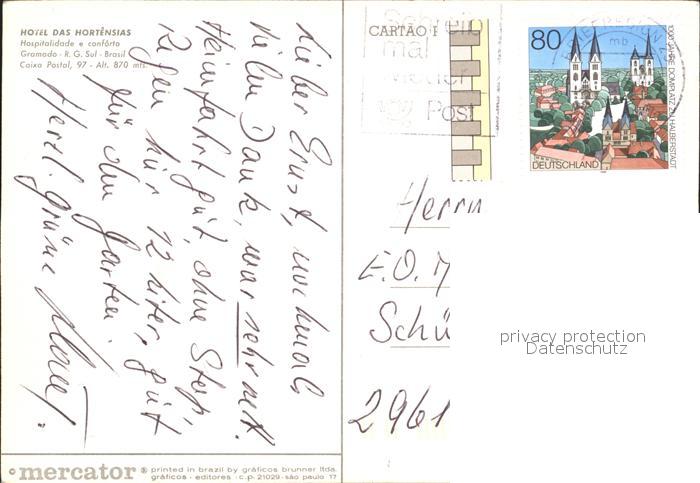 HOTEL DAS HORTÊNSIAS
Hospitalidade e confôrto
Gramado - R. G. Sul - Brasil
Caixa Postal, 97 - Alt. 870 mts.
Lieber Ernst, nochmals
vielen Dank, war sehr nett.
Heimfahrt gut, ohne Stop,
Regen hier 12 Liter, gut
für den Garten.
Herzl. Grüße
mercator ® printed in brazil by gráficos brunner ltda.
gráficos - editores - c.p. 21029 - são paulo 17
CARTÃO P
Schreib
mal
wieder
Post
80
DEUTSCHLAND
1000 JAHRE DOMPLATZ ZU HALBERSTADT
BRIEFREGION
mb
Herrn
E.O.
Schü
2961
privacy protection
Datenschutz